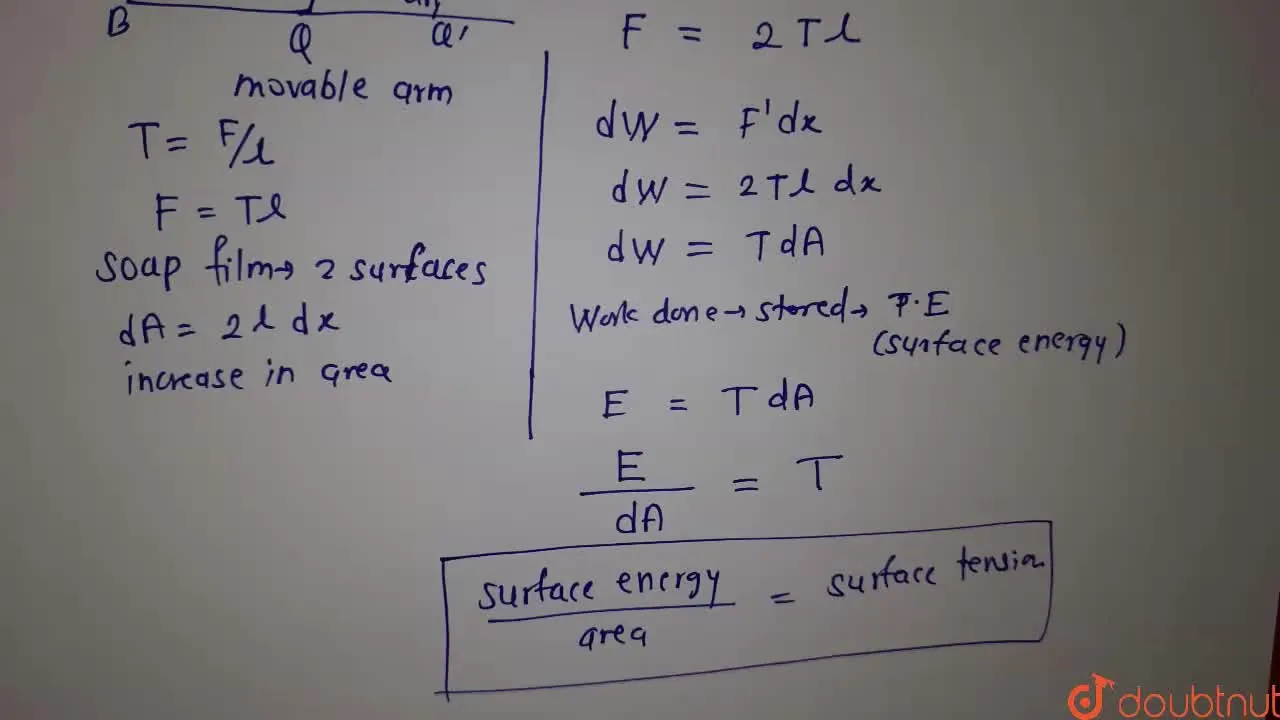 B
Q
Q'
movable arm
T = F/l
F = Tl
soap film → 2 surfaces
dA = 2l dx
increase in area
F = 2Tl
dW = F'dx
dW = 2Tl dx
dW = TdA
Work done → stored → P.E
(surface energy)
E = TdA
E
dA
= T
surface energy
area
= surface tension
doubtnut